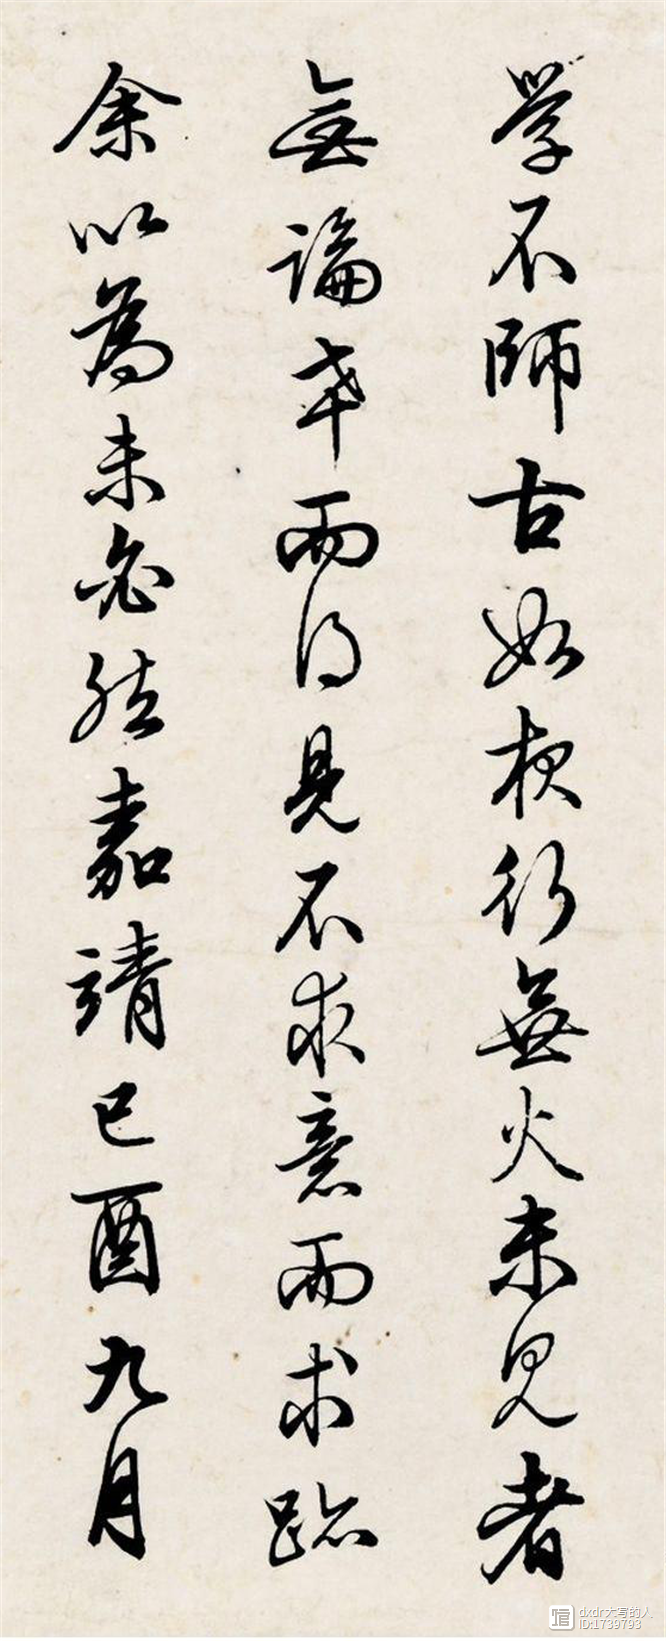 學不師古如夜行無火未見者
無論幸而得見不求意而求跡
余以為未必然嘉靖己酉九月
dxdr大写的人
ID:1739793